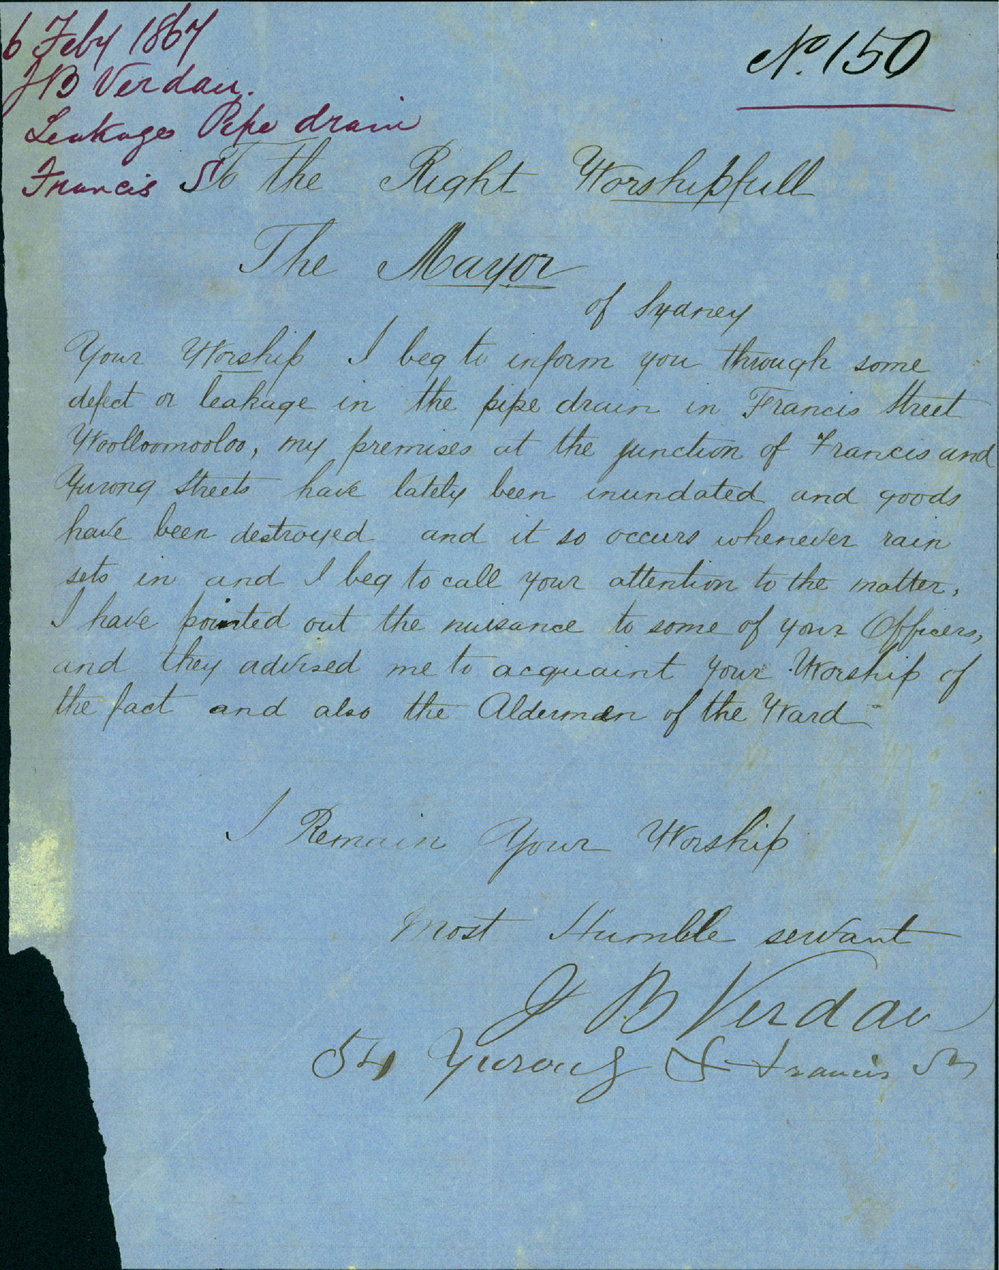 6 Feby 1867
JB Verdau.
Leakage Pipe drain
Francis St
No. 150
To the Right Worshipfull
The Mayor
of Sydney
Your Worship I beg to inform you through some
defect or leakage in the pipe drain in Francis Street
Woolloomooloo, my premises at the junction of Francis and
Yurong Streets have lately been inundated and goods
have been destroyed and it so occurs whenever rain
sets in and I beg to call your attention to the matter,
I have pointed out the nuisance to some of your Officers,
and they advised me to acquaint your Worship of
the fact and also the Aldermen of the Ward
I Remain Your Worship
Most Humble servant
J B Verdau
54 Yurong & Francis St